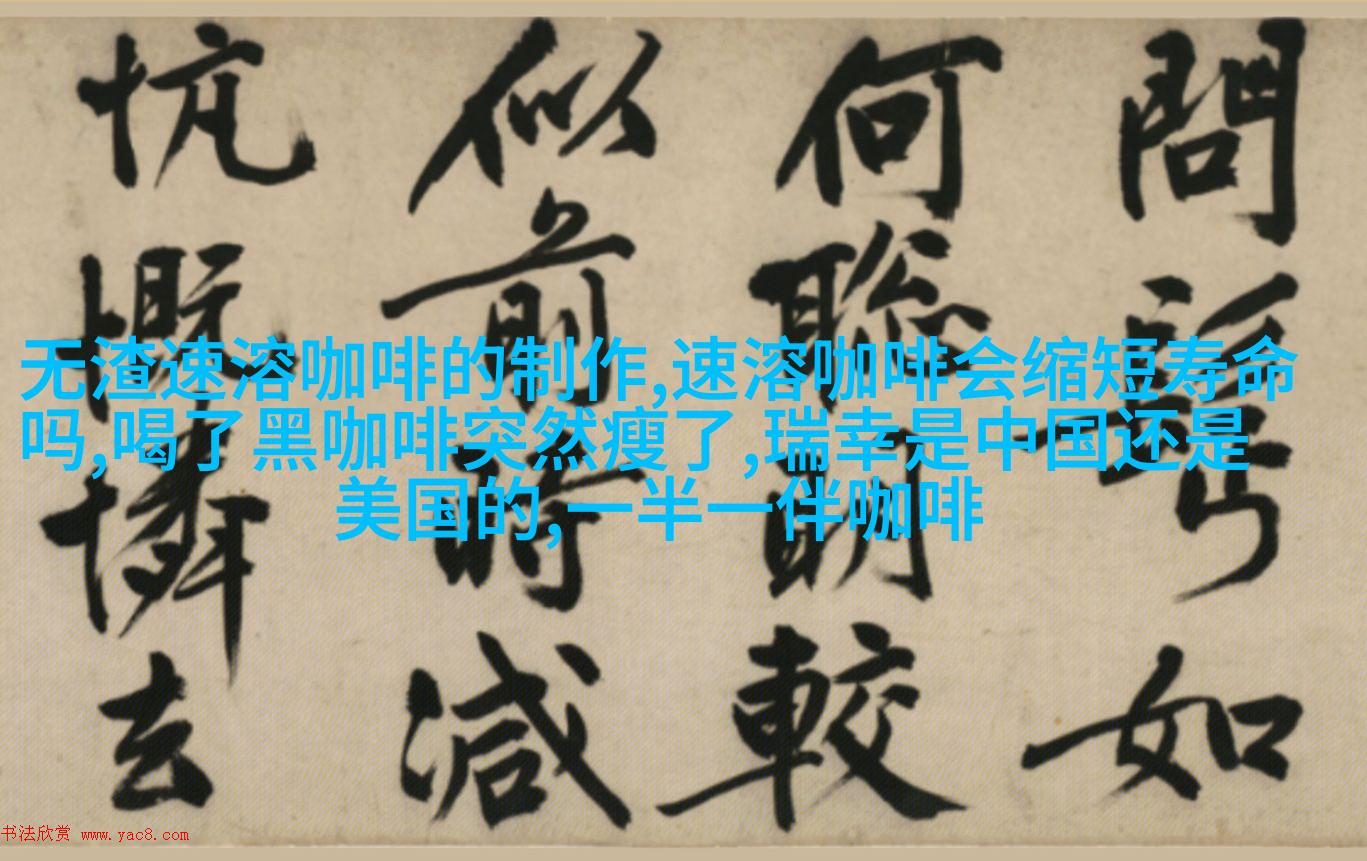 問如
何聰明較
似前時減
忼慨憐去
无渣速溶咖啡的制作,速溶咖啡会缩短寿命
吗,喝了黑咖啡突然瘦了,瑞幸是中国还是
美国的,一半一伴咖啡
书法欣赏 www.yac8.com